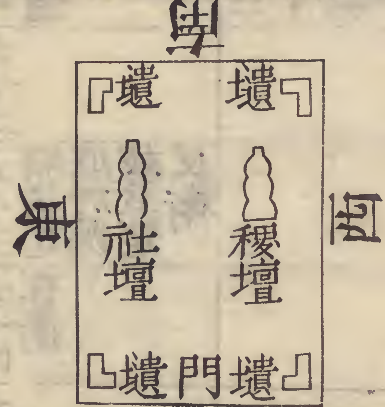 南
壝 壝
東
社壇
稷壇
西
壝門壝